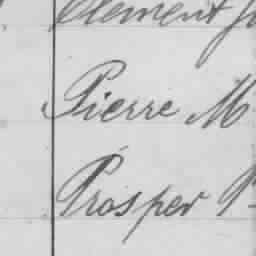 Clement
Pierre M
Prosper P